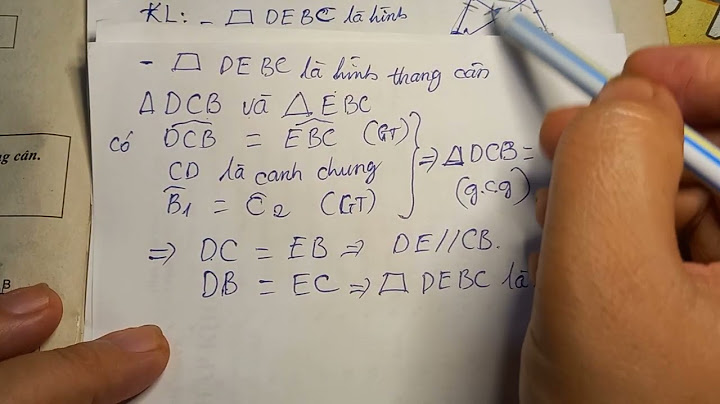 KL: - ⏢ DEBC là hình
- ⏢ DEBC là hình thang cân
Δ DCB và Δ EBC
có DCB = EBC (GT)
CD là cạnh chung
B1 = C2 (GT)
⇒ Δ DCB =
(g.c.g)
⇒ DC = EB ⇒ DE//CB.
DB = EC ⇒ ⏢ DEBC là
g cân.
B